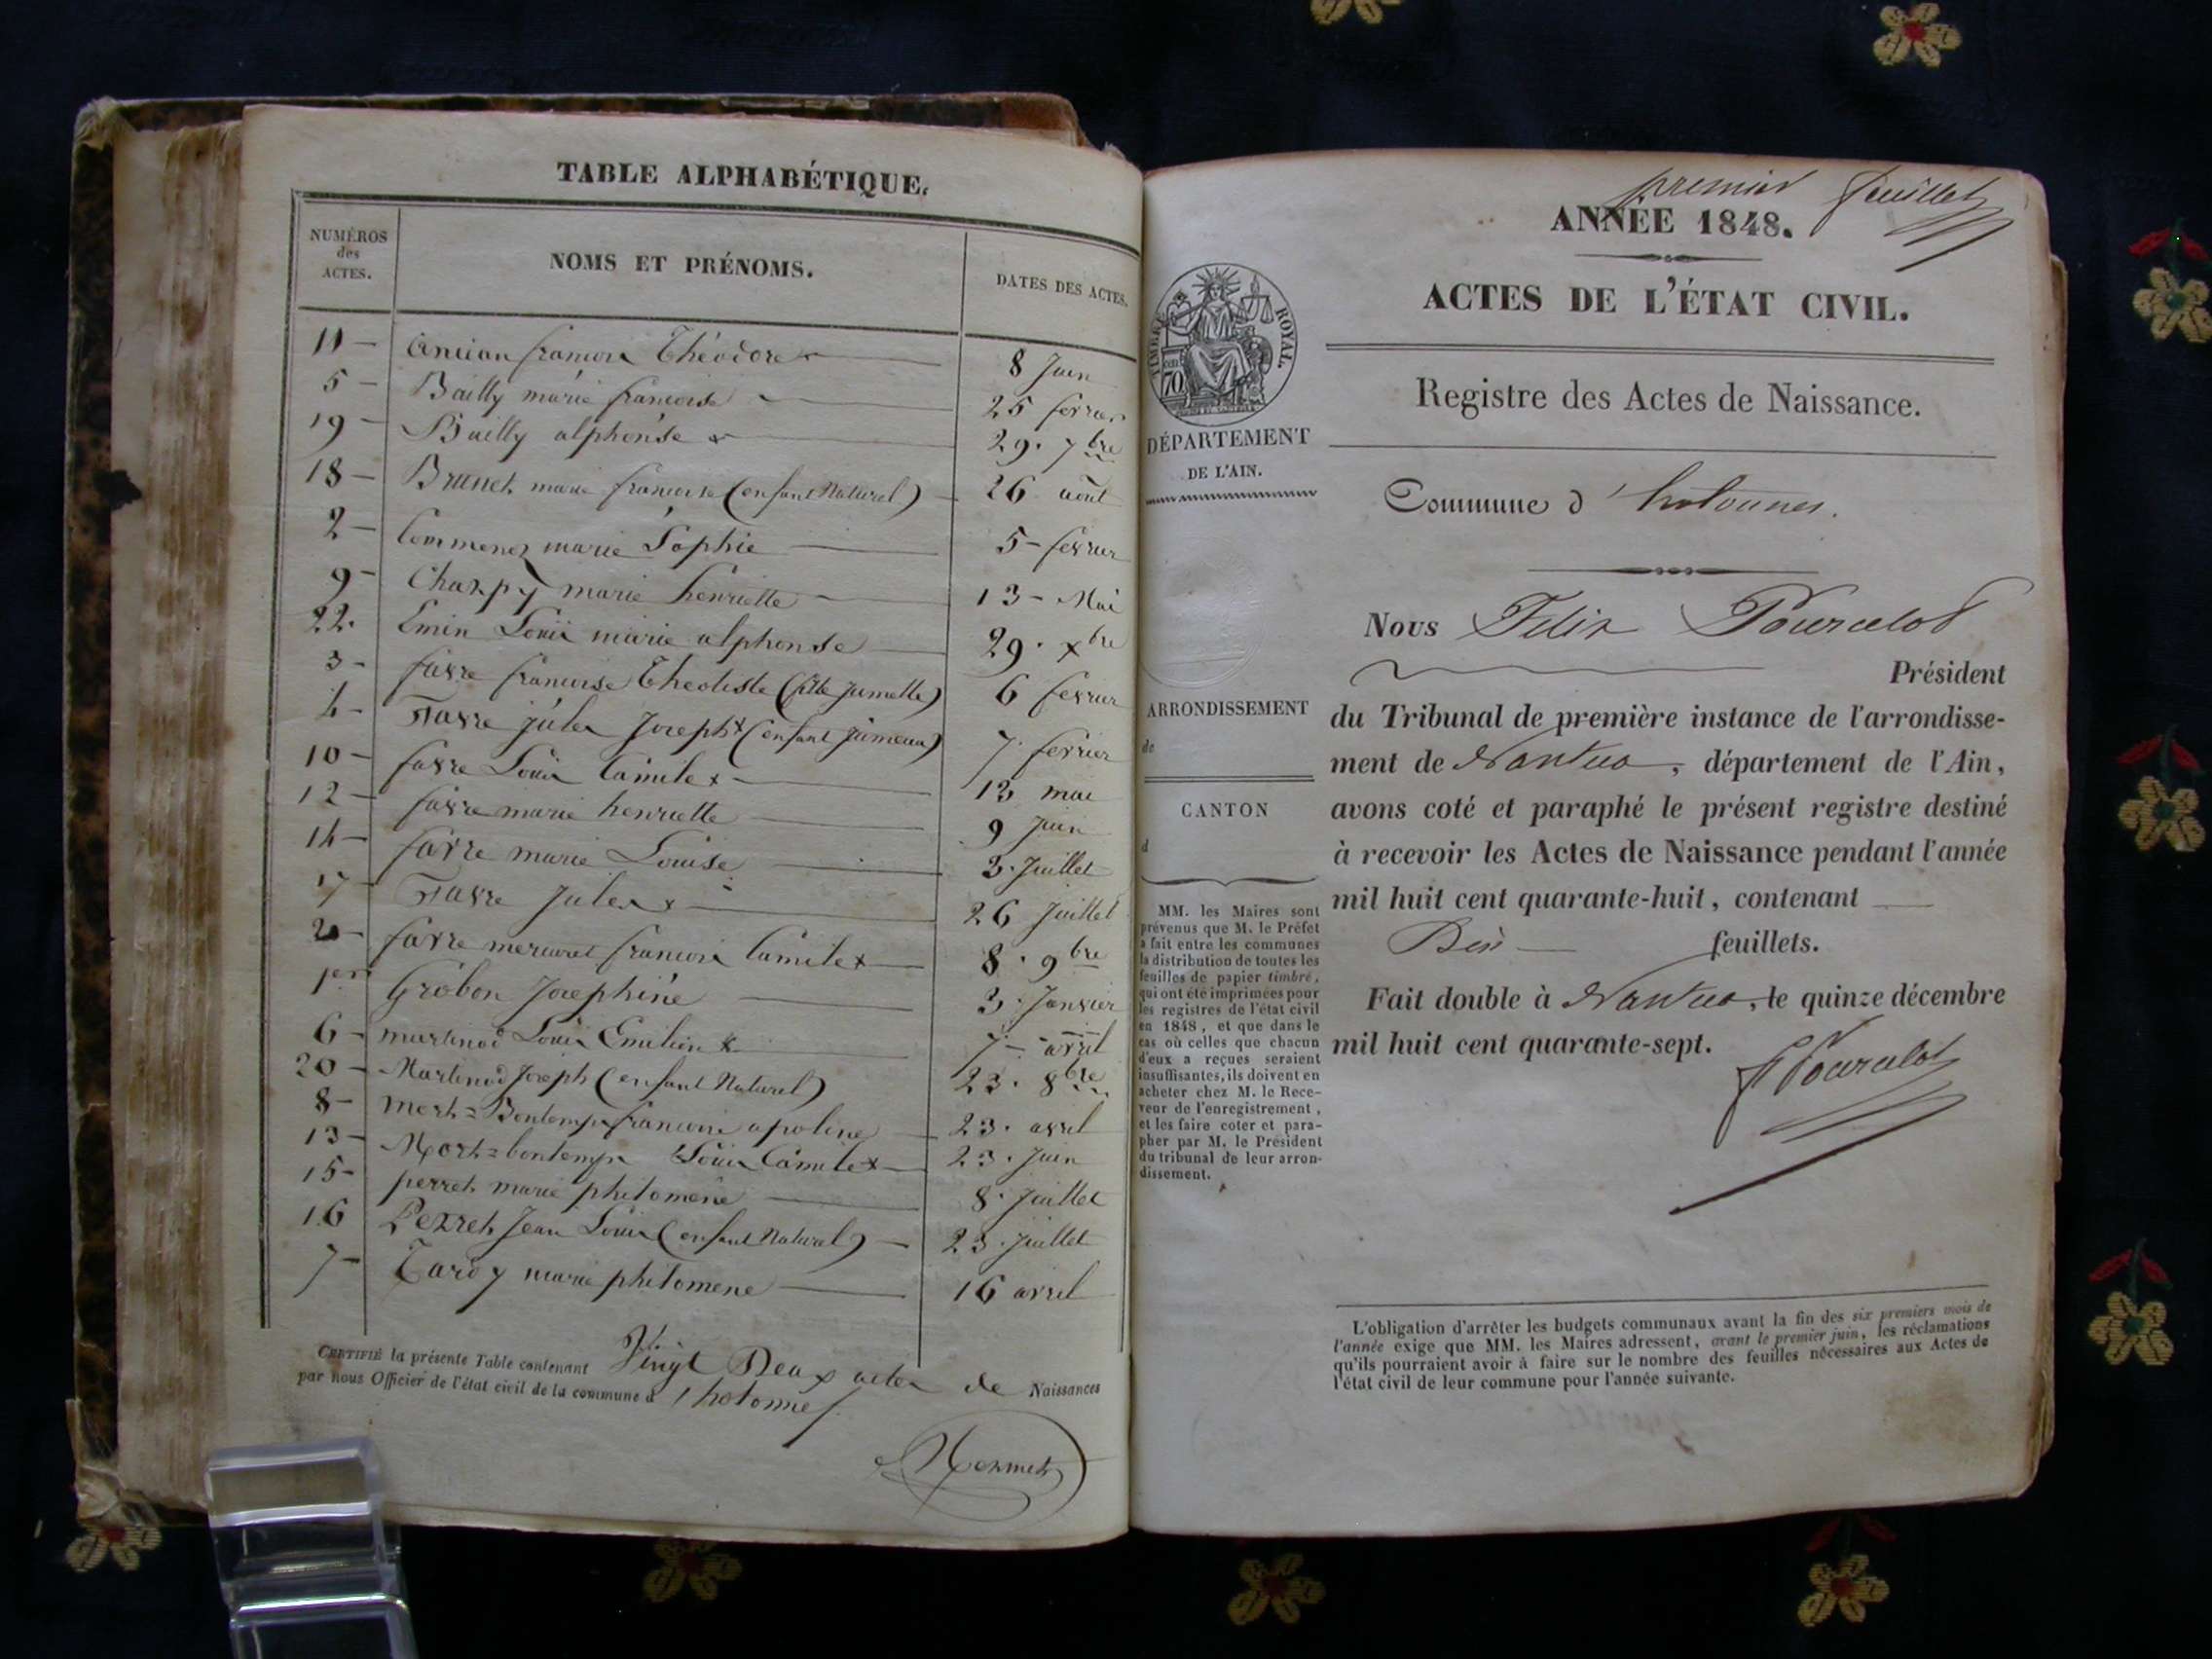 TABLE ALPHABÉTIQUE.
NUMÉROS des ACTES.
NOMS ET PRÉNOMS.
DATES DES ACTES.
11 - Ancian françois Théodore x 8 Juin
5 - Bailly marie francoise 25 fevrier
19 - Bailly alphonse x 29. 7bre
18 - Brunet marie francoise (enfant Naturel) 26 août
2 - marie Sophie 5 - fevrier
9 - Charpy marie henriette 13 - Mai
22. Emin Louis marie alphonse 29. xbre
3 - favre francoise Theotiste (fille Jumelle) 6 fevrier
4 - Favre jules Joseph x (enfant Jumeau) 7. fevrier
10 - favre Louis Camile x 13 mai
12 - favre marie henriette 9 Juin
14 - favre marie Louise 3. Juillet
17 - Favre Jules x 26 Juillet
favre francois Camile x 8. 9bre
1er Gróbon Josephine 3. Janvier
6 - martinod Louis Emilien x 7 - avril
20 - Martinod Joseph (enfant Naturel) 23. 8bre
8 - Mort=Bontemps francoise apoline 23. avril
13 - Mort=bontemps Louis Camile x 23. Juin
15 - perret marie philomène 8. Juillet
16 Perret Jean Louis (enfant Naturel) 23. Juillet
7 - Tardy marie philomene 16 avril
CERTIFIÉ la présente Table contenant Vingt Deux actes de Naissances
par nous Officier de l'état civil de la commune d'hotonnes
Mermet
premier feuillet
ANNÉE 1848.
ACTES DE L'ÉTAT CIVIL.
TIMBRE ROYAL.
70
Registre des Actes de Naissance.
DÉPARTEMENT
DE L'AIN.
Commune d'hotonnes.
Nous Felix Pourcelot
Président
ARRONDISSEMENT
de
CANTON
d
du Tribunal de première instance de l'arrondisse-
ment de Nantua, département de l'Ain,
avons coté et paraphé le présent registre destiné
à recevoir les Actes de Naissance pendant l'année
mil huit cent quarante-huit, contenant
Dix feuillets.
Fait double à Nantua, le quinze décembre
mil huit cent quarante-sept.
F Pourcelot
MM. les Maires sont
prévenus que M. le Préfet
a fait entre les communes
la distribution de toutes les
feuilles de papier timbré,
qui ont été imprimées pour
les registres de l'état civil
en 1848, et que dans le
cas où celles que chacun
d'eux a reçues seraient
insuffisantes, ils doivent en
acheter chez M. le Rece-
veur de l'enregistrement,
et les faire coter et para-
pher par M. le Président
du tribunal de leur arron-
dissement.
L'obligation d'arrêter les budgets communaux avant la fin des six premiers mois de
l'année exige que MM. les Maires adressent, avant le premier juin, les réclamations
qu'ils pourraient avoir à faire sur le nombre des feuilles nécessaires aux Actes de
l'état civil de leur commune pour l'année suivante.